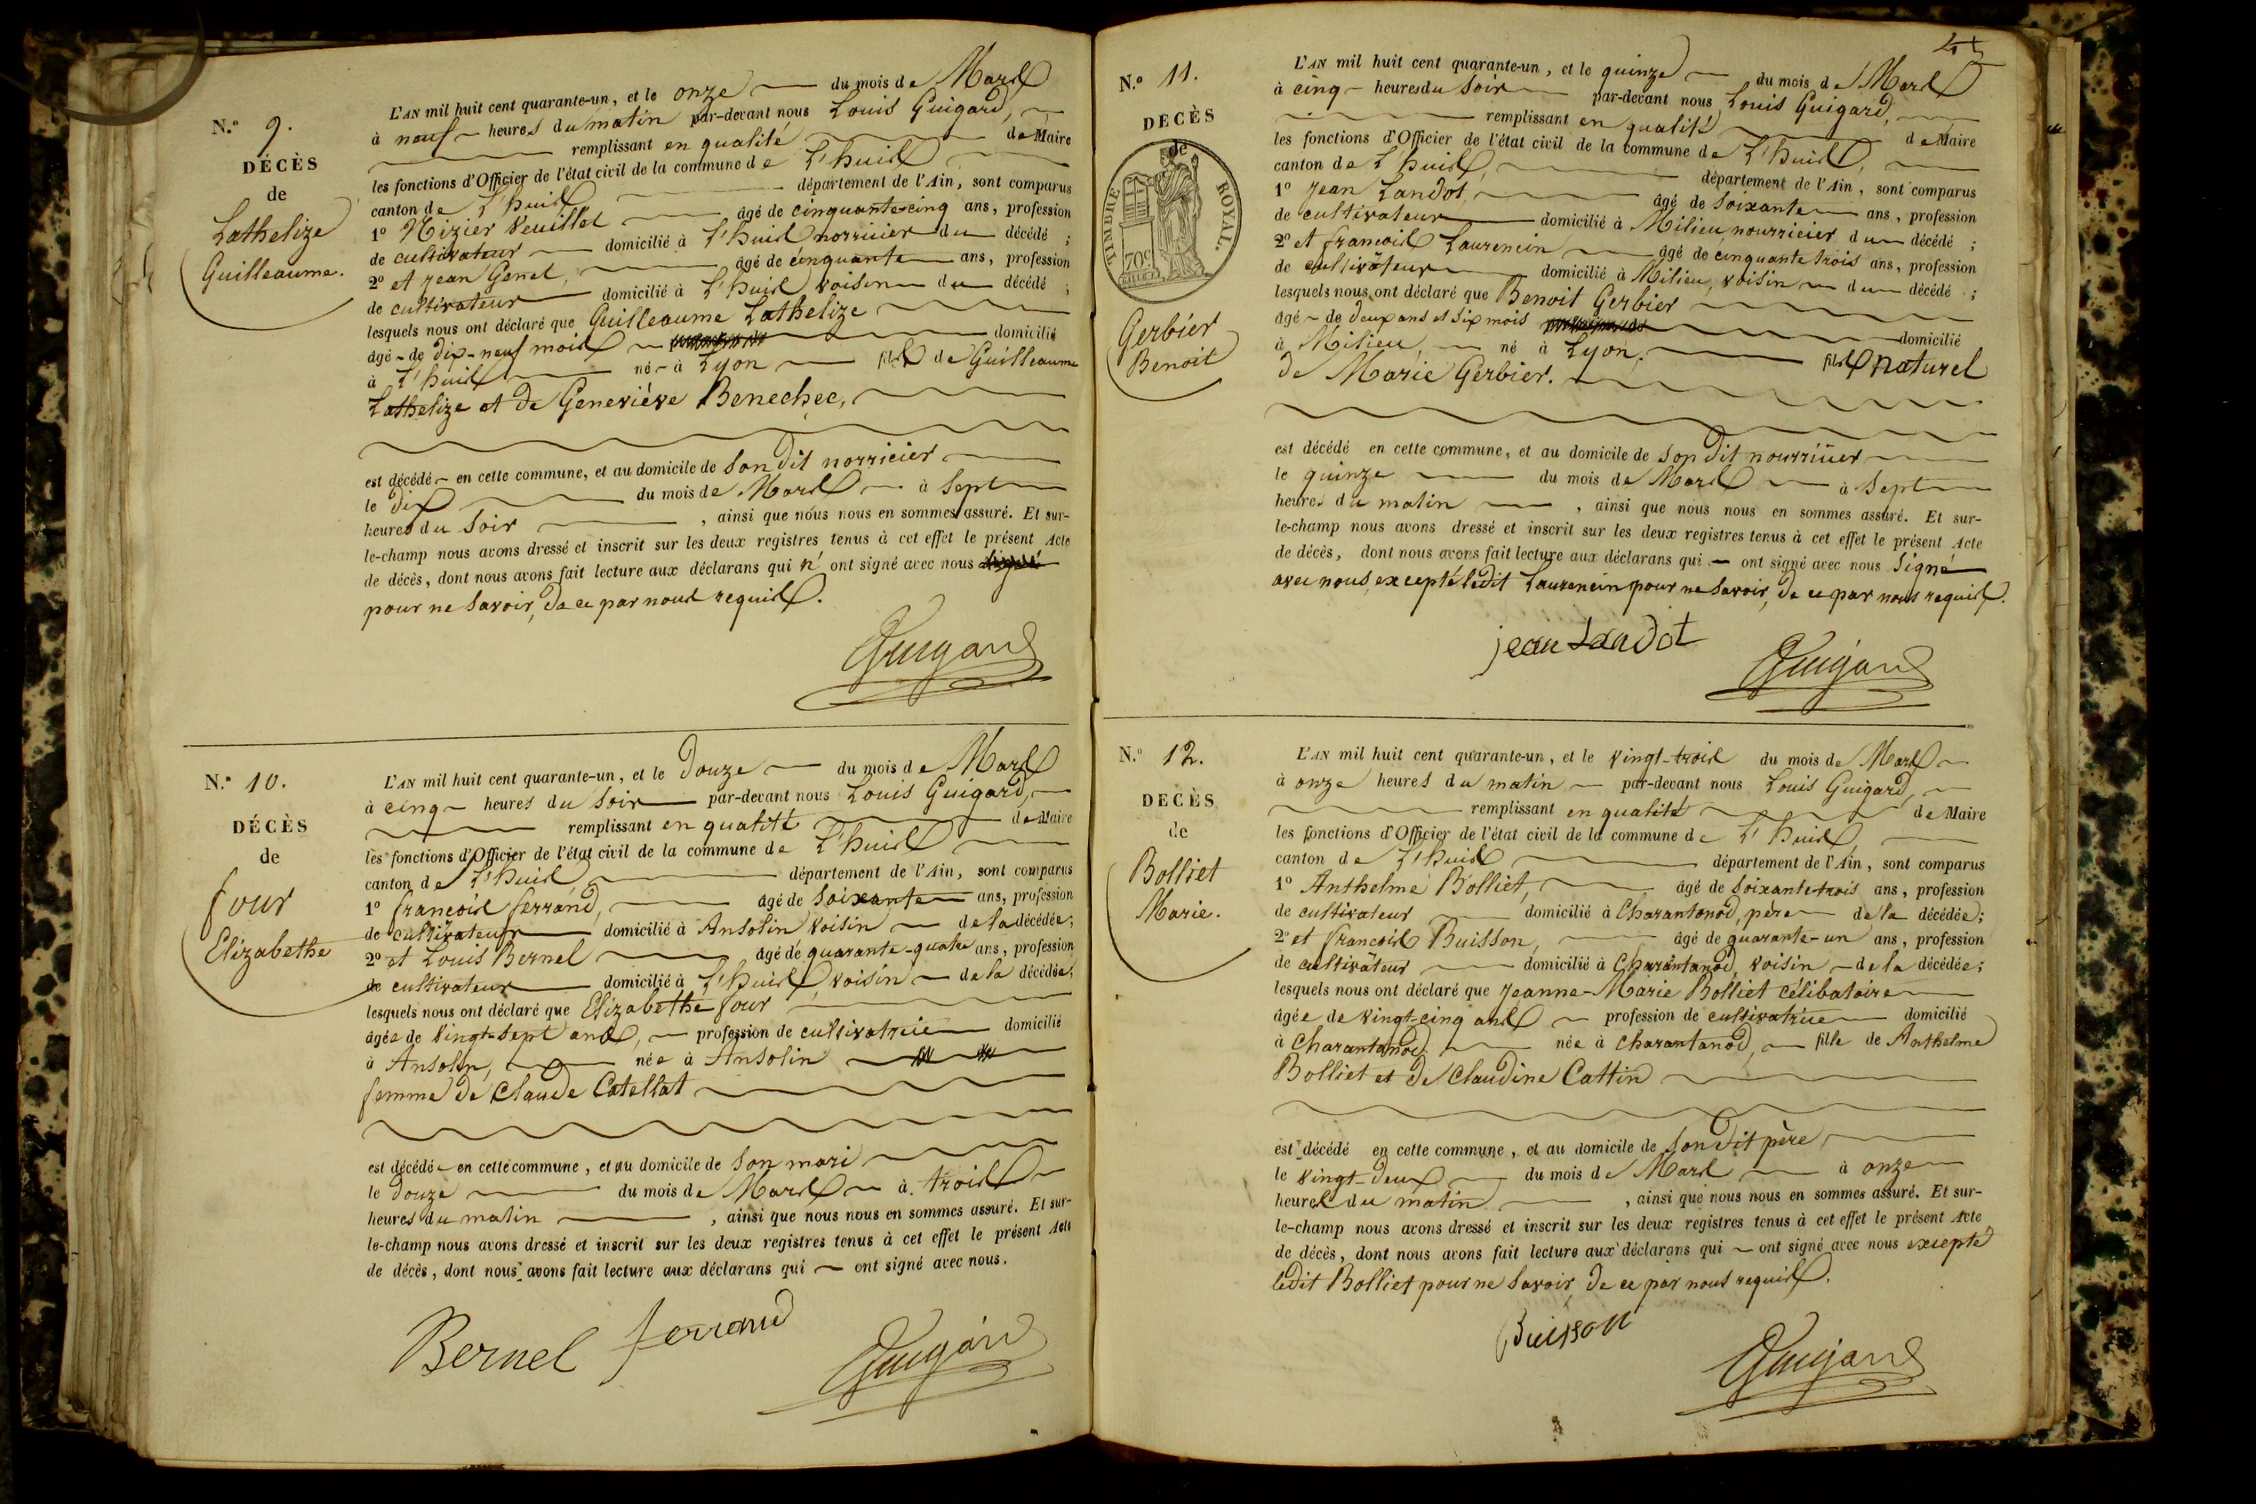 N.º 9.
DÉCÈS
de
Lathelize
Guilleaume.
L'AN mil huit cent quarante-un, et le onze du mois de Mars
à neuf heures du matin par-devant nous Louis Guigard,
remplissant en qualité de Maire
les fonctions d'Officier de l'état civil de la commune de L'huis
canton de L'huis département de l'Ain, sont comparus
1º Nizier Veuillet âgé de cinquante-cinq ans, profession
de cultivateur domicilié à L'huis norricier du décédé ;
2º et jean Genet, âgé de cinquante ans, profession
de cultivateur domicilié à L'huis voisin du décédé ;
lesquels nous ont déclaré que Guilleaume Lathelize
âgé de dix-neuf mois domicilié
à L'huis né à Lyon fils de Guilleaume
Lathelize et de Geneviéve Benechec,
est décédé en cette commune, et au domicile de son dit norricier
le dix du mois de Mars à sept
heures du soir , ainsi que nous nous en sommes assuré. Et sur-
le-champ nous avons dressé et inscrit sur les deux registres tenus à cet effet le présent Acte
de décès, dont nous avons fait lecture aux déclarans qui n' ont signé avec nous signé
pour ne savoir, de ce par nous requis.
Guigard
N.º 10.
DÉCÈS
de
four
Elizabethe
L'AN mil huit cent quarante-un, et le douze du mois de Mars
à cinq heures du soir par-devant nous Louis Guigard,
remplissant en qualité de Maire
les fonctions d'Officier de l'état civil de la commune de L'huis
canton de L'huis, département de l'Ain, sont comparus
1º francois ferrand, âgé de soixante ans, profession
de cultivateur domicilié à Ansolin voisin de la décédée ;
2º et Louis Bernel âgé de quarante-quatre ans, profession
de cultivateur domicilié à L'huis, voisin de la décédée ;
lesquels nous ont déclaré que Elizabethe four
âgée de vingt-sept ans, profession de cultivatrice domicilié
à Ansolin, née à Ansolin
femme de Claude Catellat
est décédé en cette commune, et au domicile de son mari
le douze du mois de Mars à trois
heures du matin , ainsi que nous nous en sommes assuré. Et sur-
le-champ nous avons dressé et inscrit sur les deux registres tenus à cet effet le présent Acte
de décès, dont nous avons fait lecture aux déclarans qui ont signé avec nous.
Bernel ferrand Guigard
N.º 11.
DÉCÈS
de
TIMBRE ROYAL.
70c
Gerbier
Benoit
L'AN mil huit cent quarante-un, et le quinze du mois de Mars
à cinq heures du soir par-devant nous Louis Guigard,
remplissant en qualité de Maire
les fonctions d'Officier de l'état civil de la commune de L'huis,
canton de L'huis, département de l'Ain, sont comparus
1º jean Landot, âgé de soixante ans, profession
de cultivateur domicilié à Milieu, nourricier du décédé ;
2º et francois Laurencin âgé de cinquante trois ans, profession
de cultivateur domicilié à Milieu, voisin du décédé ;
lesquels nous ont déclaré que Benoit Gerbier
âgé de deux ans et six mois domicilié
à Milieu, né à Lyon, fils naturel
de Marie Gerbier.
est décédé en cette commune, et au domicile de son dit nourricier
le quinze du mois de Mars à sept
heures du matin , ainsi que nous nous en sommes assuré. Et sur-
le-champ nous avons dressé et inscrit sur les deux registres tenus à cet effet le présent Acte
de décès, dont nous avons fait lecture aux déclarans qui ont signé avec nous signé
avec nous, excepté ledit Laurencin pour ne savoir, de ce par nous requis.
jean Landot
Guigard
N.º 12.
DÉCÈS
de
Bolliet
Marie.
L'AN mil huit cent quarante-un, et le vingt-trois du mois de Mars
à onze heures du matin par-devant nous Louis Guigard,
remplissant en qualité de Maire
les fonctions d'Officier de l'état civil de la commune de L'huis,
canton de L'huis département de l'Ain, sont comparus
1º Anthelme Bolliet, âgé de soixante trois ans, profession
de cultivateur domicilié à Charantonod, père de la décédée ;
2º et francois Buisson, âgé de quarante-un ans, profession
de cultivateur domicilié à Charantanod, voisin de la décédée ;
lesquels nous ont déclaré que jeanne-Marie Bolliet célibatoire
âgée de vingt-cinq ans profession de cultivatrice domicilié
à Charantanod, née à Charantanod, fille de Anthelme
Bolliet et de Claudine Cattin
est décédé en cette commune, et au domicile de son dit père
le vingt-deux du mois de Mars à onze
heures du matin , ainsi que nous nous en sommes assuré. Et sur-
le-champ nous avons dressé et inscrit sur les deux registres tenus à cet effet le présent Acte
de décès, dont nous avons fait lecture aux déclarans qui ont signé avec nous excepté
ledit Bolliet pour ne savoir, de ce par nous requis.
Buisson
Guigard